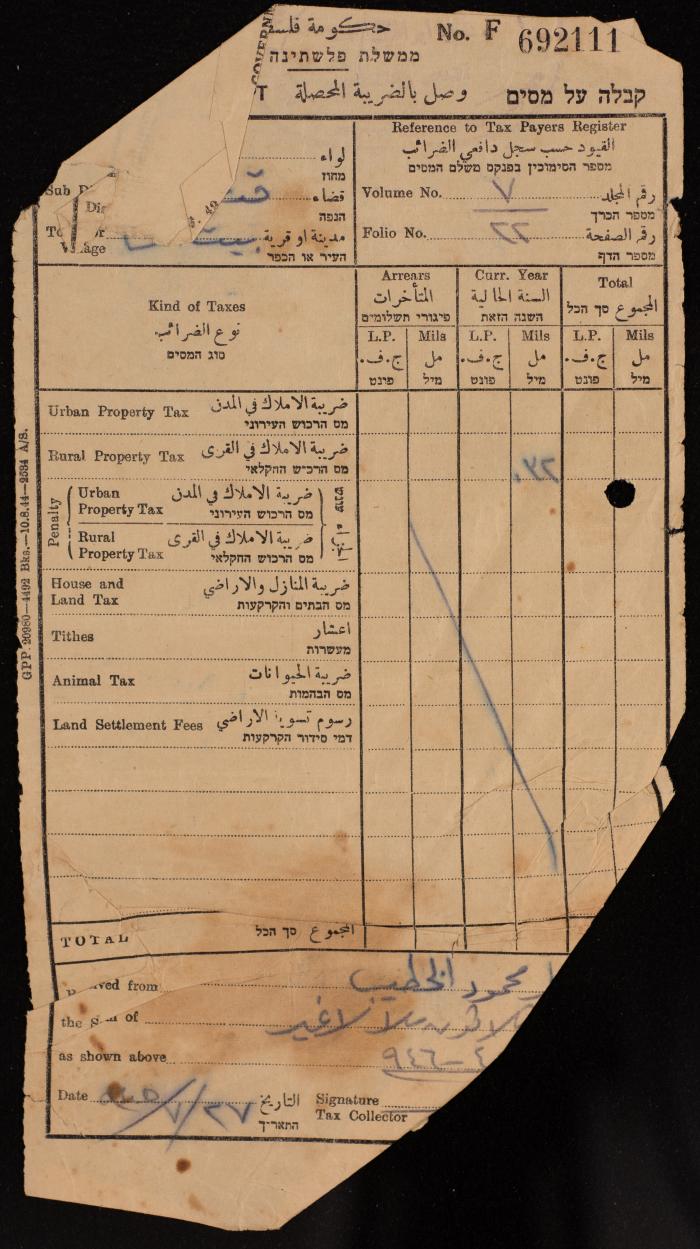 No. F 692111
ממשלת פלשתינה
وصل بالضريبة المحصلة קבלה על מסים
Reference to Tax Payers Register
القيود حسب سجل دافعي الضرائب
מספר הסימוכין בפנקס משלם המסים
لواء
מחוז
قضاء
הנפה
مدينة او قرية
העיר או הכפר
Volume No. ٧ رقم المجلد
מספר הכרך
Folio No. ٢٢ رقم الصفحة
מספר הדף
Kind of Taxes
نوع الضرائب
סוג המסים
Arrears
المتأخرات
פיגורי תשלומים
Curr. Year
السنة الحالية
השנה הזאת
Total
المجموع סך הכל
L.P. Mils L.P. Mils L.P. Mils
ج.ف. مل ج.ف. مل ج.ف. مل
פונט מיל פונט מיל פונט מיל
Urban Property Tax ضريبة الاملاك في المدن
מס הרכוש העירוני
Rural Property Tax ضريبة الاملاك في القرى
מס הרכוש החקלאי
Penalty
Urban Property Tax ضريبة الاملاك في المدن
מס הרכוש העירוני
Rural Property Tax ضريبة الاملاك في القرى
מס הרכוש החקלאי
House and Land Tax ضريبة المنازل والاراضي
מס הבתים והקרקעות
Tithes اعشار
מעשרות
Animal Tax ضريبة الحيوانات
מס הבהמות
Land Settlement Fees رسوم تسوية الاراضي
דמי סידור הקרקעות
TOTAL المجموع סך הכל
from محمود الخطيب
the of
as shown above ٩٤٦
Date ٢٧/٧/ التاريخ
התאריך
Signature
Tax Collector
GPP. 20980—4492 Bks.—10.8.44—2534 A/S.